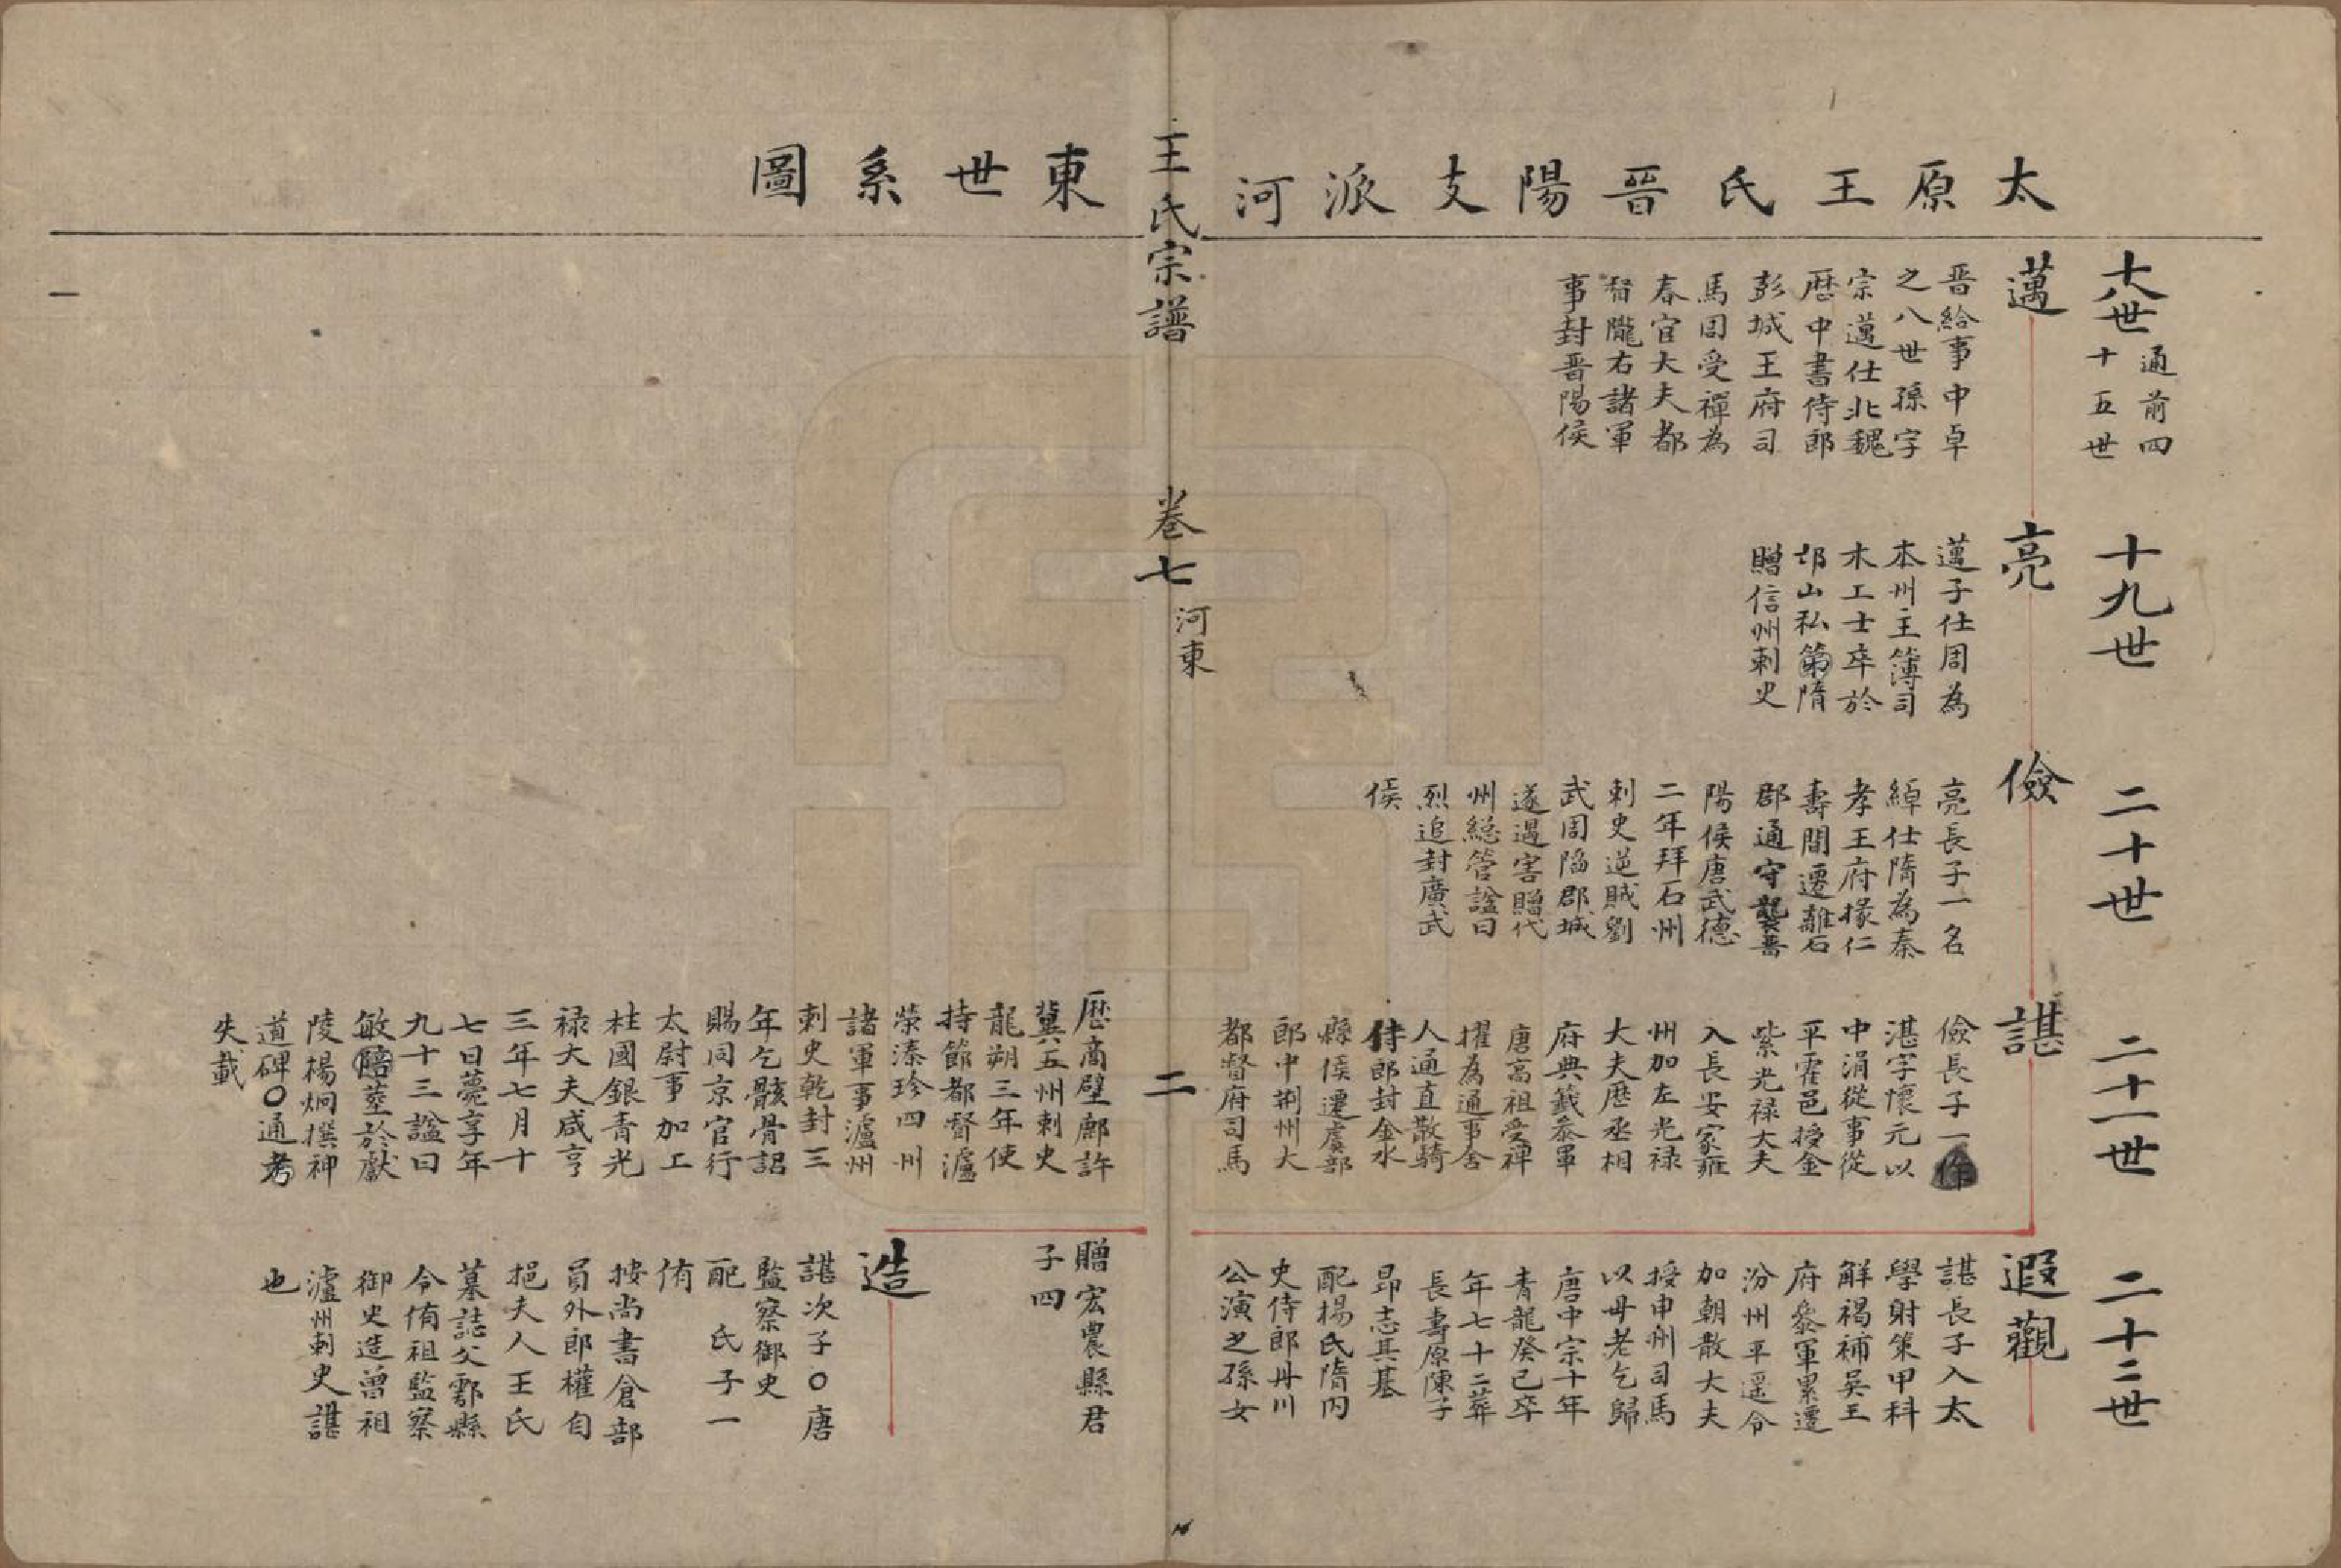 太原王氏晉陽支派河東世系圖
王氏宗譜
卷七
河東
二
十八世
通前四
十五世
邁
晋給事中卓
之八世孫字
宗邁仕北魏
歷中書侍郎
彭城王府司
馬周受禪為
春官大夫都
督隴右諸軍
事封晋陽侯
十九世
亮
邁子仕周為
本州主簿司
木工士卒於
邙山私第隋
贈信州刺史
二十世
儉
亮長子一名
綽仕隋為秦
孝王府掾仁
壽間遷離石
郡通守襲晋
陽侯唐武德
二年拜石州
刺史逆賊劉
武周陷郡城
遂遇害贈代
州總管諡曰
烈追封廣武
侯
二十一世
諶
儉長子一作
湛字懷元以
中涓從事從
平霍邑授金
紫光禄大夫
入長安家雍
州加左光禄
大夫歷丞相
府典籤叅軍
唐高祖受禅
擢為通事舍
人通直散騎
侍郎封金水
縣侯遷虞部
郎中荆州大
都督府司馬
歷商壁鄜許
冀五州刺史
龍朔三年使
持節都督瀘
榮溱珍四州
諸軍事瀘州
刺史乾封三
年乞骸骨詔
賜同京官行
太尉事加工
柱國銀青光
禄大夫咸亨
三年七月十
七日薨享年
九十三諡曰
敏陪塟於獻
陵楊炯撰神
道碑〇通考
失載
二十二世
遐觀
諶長子入太
學射策甲科
觧褐補吴王
府叅軍累遷
汾州平遥令
加朝散大夫
授申州司馬
以母老乞歸
唐中宗十年
青龍癸巳卒
年七十二葬
長壽原陳子
昂志其基
配楊氏隋内
史侍郎丹川
公演之孫女
贈宏農縣君
子四
造
諶次子〇唐
監察御史
配 氏子一
侑
按尚書倉部
員外郎權自
挹夫人王氏
墓誌父鄠縣
令侑祖監察
御史造曾祖
瀘州刺史諶
也